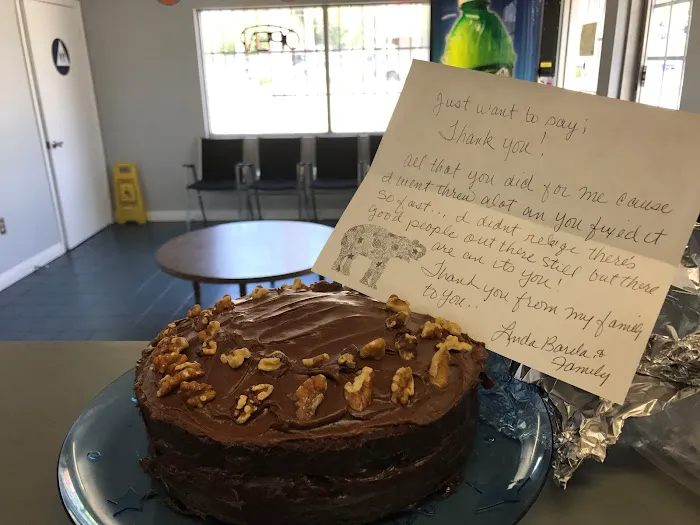 Just want to say;
Thank you!
all that you did for me cause
I went threw alot an you fixed it
so fast... I didnt relize there's
good people out there still but there
are an its you!
Thank you from my family
to you..
Linda Barela &
Family